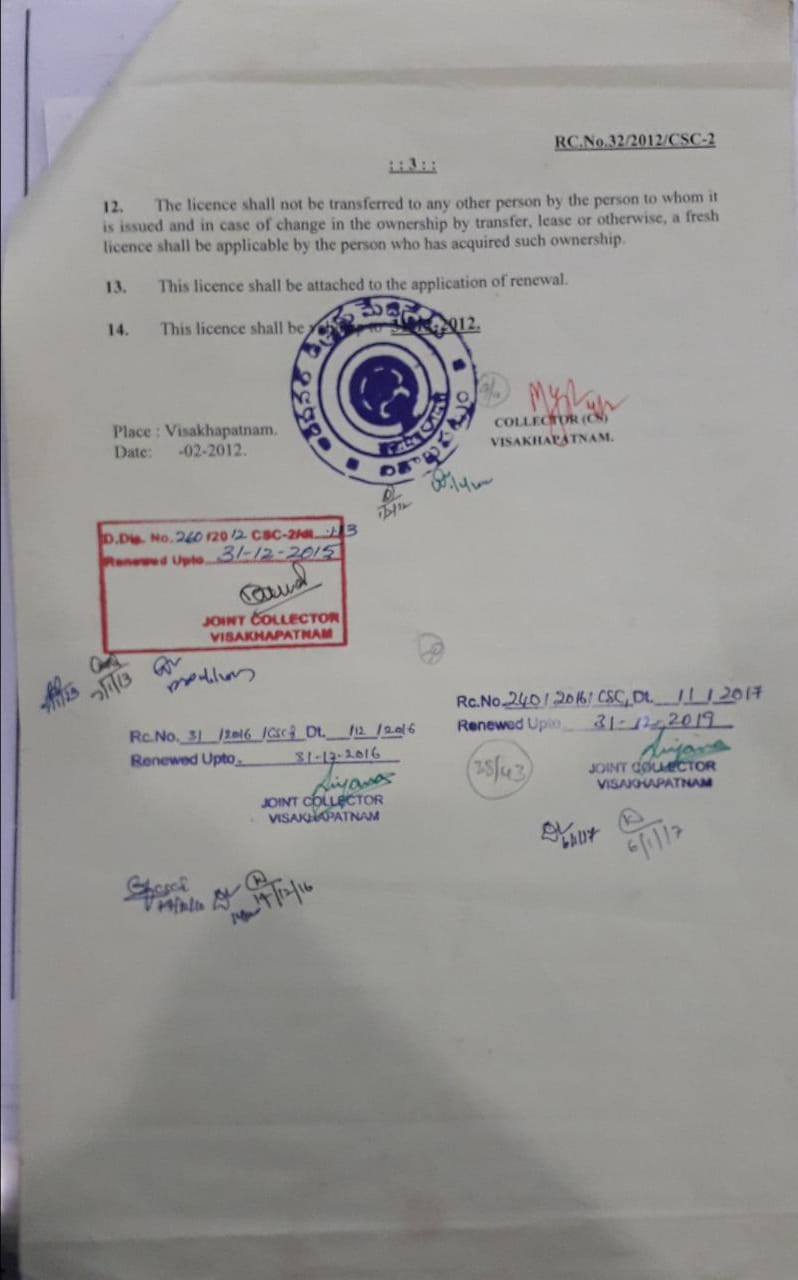 RC.No.32/2012/CSC-2
: : 3 : :
12. The licence shall not be transferred to any other person by the person to whom it
is issued and in case of change in the ownership by transfer, lease or otherwise, a fresh
licence shall be applicable by the person who has acquired such ownership.
13. This licence shall be attached to the application of renewal.
14. This licence shall be 2012.
COLLECTOR (CS)
VISAKHAPATNAM.
Place : Visakhapatnam.
Date: -02-2012.
D.Dis. No. 260/2012 CSC-2/
Renewed Upto 31-12-2015
JOINT COLLECTOR
VISAKHAPATNAM
Rc.No. 31 /2016 /CSC2 Dt. /12 /2016
Renewed Upto. 31-12-2016
JOINT COLLECTOR
VISAKHAPATNAM
14/12/16
Rc.No. 240/2016/ CSC, Dt. 11/1/2017
Renewed Upto 31-12-2019
38/43
JOINT COLLECTOR
VISAKHAPATNAM
6/1/17